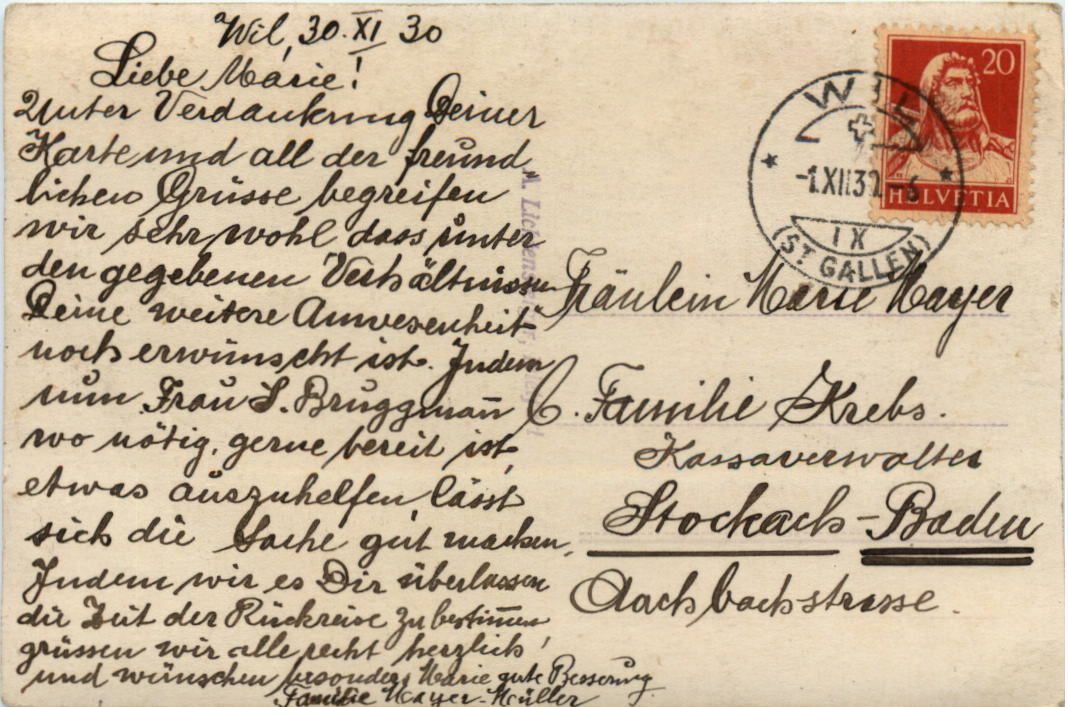 Wil, 30. XI 30
Liebe Marie!
Unter Verdankung Deiner
Karte und all der freund
lichen Grüsse begreifen
wir sehr wohl dass unter
den gegebenen Verhältnissen
Deine weitere Anwesenheit
noch erwünscht ist. Indem
nun Frau S. Bruggmañ
wo nötig, gerne bereit ist,
etwas auszuhelfen, lässt
sich die Sache gut machen,
Indem wir es Dir überlassen
die Zeit der Rückreise zu bestim̄en
grüssen wir alle recht herzlich!
und wünschen besonders Marie gute Besserung
Familie Mayer-Müller
20
HELVETIA
WIL
-1.XII.30.-6
IX
(ST. GALLEN)
Fräulein Marie Mayer
C. Familie Krebs.
Kassaverwalter
Stockach-Baden
Aachbachstrasse.